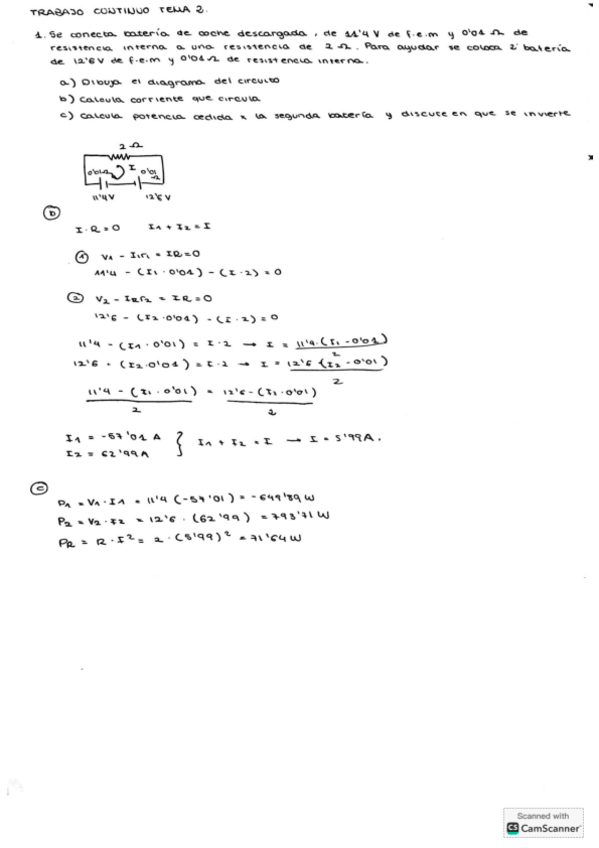 TRABAJO CONTINUO TEMA 2.
1. Se conecta batería de coche descargada, de 11'4 V de f.e.m y 0'01 Ω de
resistencia interna a una resistencia de 2 Ω. Para ayudar se coloca 2ª batería
de 12'6V de f.e.m y 0'01Ω de resistencia interna.
a) Dibuja el diagrama del circuito
b) Calcula corriente que circula
c) Calcula potencia cedida x la segunda batería y discute en que se invierte
2 Ω
I
0'01
11'4V 12'6 V
b
I·R=0 I1 + I2 = I
① V1 - I1r1 = IR=0
11'4 - (I1 · 0'01) - (I · 2) = 0
② V2 - I2r2 = IR=0
12'6 - (I2 · 0'01) - (I · 2) = 0
11'4 - (I1 · 0'01) = I · 2 → I = 11'4 · (I1 - 0'01)
2
12'6 - (I2 · 0'01) = I · 2 → I = 12'6 (I2 - 0'01)
2
11'4 - (I1 · 0'01) = 12'6 - (I1 · 0'01)
2 2
I1 = -57'01 A
I2 = 62'99A
} I1 + I2 = I → I = 5'99A.
c
P1 = V1 · I1 = 11'4 (-57'01) = -649'89 W
P2 = V2 · I2 = 12'6 · (62'99) = 793'71 W
PR = R · I² = 2 · (5'99)² = 71'64 W
Scanned with
CS CamScanner